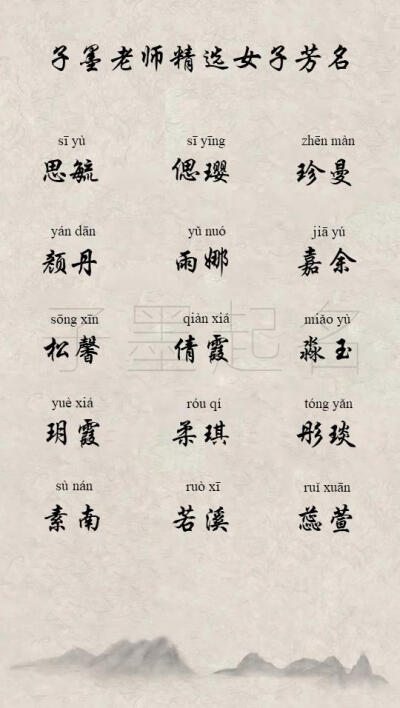 子墨老师精选女子芳名
sī yù sī yīng zhēn màn
思毓 偲璎 珍曼
yán dān yǔ nuó jiā yú
颜丹 雨娜 嘉余
sōng xīn qiàn xiá miǎo yù
松馨 倩霞 淼玉
子墨起名
yuè xiá róu qí tóng yǎn
玥霞 柔琪 彤琰
sù nán ruò xī ruǐ xuān
素南 若溪 蕊萱